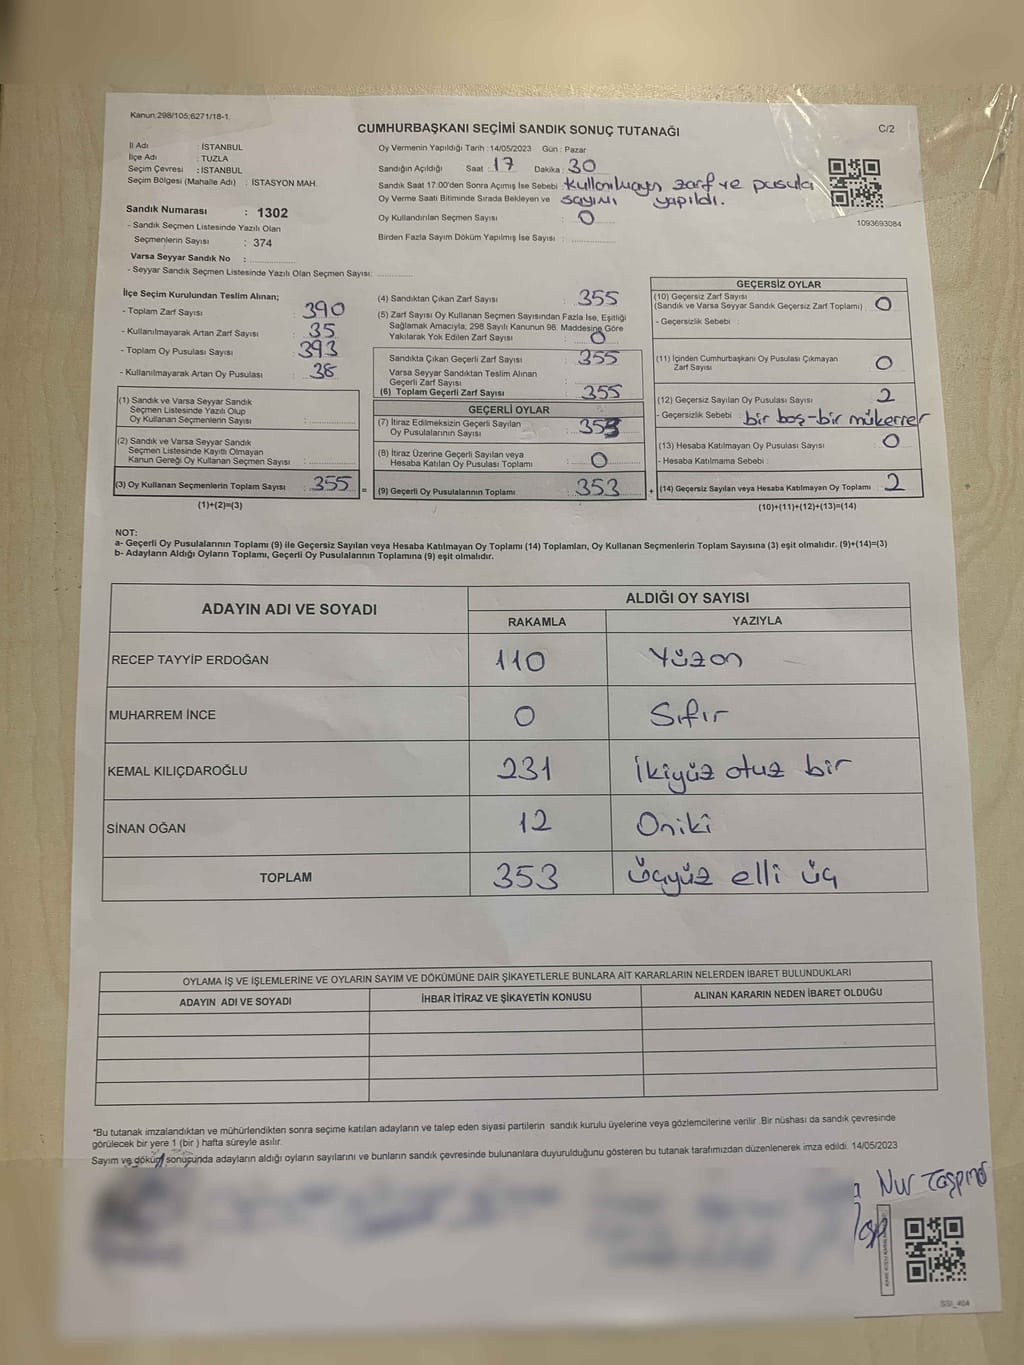 Kanun:298/105;6271/18-1
CUMHURBAŞKANI SEÇİMİ SANDIK SONUÇ TUTANAĞI
C/2
İl Adı : İSTANBUL
İlçe Adı : TUZLA
Seçim Çevresi : İSTANBUL
Seçim Bölgesi (Mahalle Adı) : İSTASYON MAH.
Sandık Numarası : 1302
- Sandık Seçmen Listesinde Yazılı Olan
Seçmenlerin Sayısı : 374
Varsa Seyyar Sandık No :
- Seyyar Sandık Seçmen Listesinde Yazılı Olan Seçmen Sayısı:
Oy Vermenin Yapıldığı Tarih : 14/05/2023 Gün : Pazar
Sandığın Açıldığı Saat : 17 Dakika : 30
Sandık Saat 17.00'den Sonra Açımış İse Sebebi : Kullanılmayan zarf ve pusula
Oy Verme Saati Bitiminde Sırada Bekleyen ve sayımı yapıldı.
Oy Kullandırılan Seçmen Sayısı : 0
Birden Fazla Sayım Döküm Yapılmış İse Sayısı :
1093693084
İlçe Seçim Kurulundan Teslim Alınan;
- Toplam Zarf Sayısı : 390
- Kullanılmayarak Artan Zarf Sayısı : 35
- Toplam Oy Pusulası Sayısı : 393
- Kullanılmayarak Artan Oy Pusulası : 38
(1) Sandık ve Varsa Seyyar Sandık
Seçmen Listesinde Yazılı Olup
Oy Kullanan Seçmenlerin Sayısı :
(2) Sandık ve Varsa Seyyar Sandık
Seçmen Listesinde Kayıtlı Olmayan
Kanun Gereği Oy Kullanan Seçmen Sayısı :
(3) Oy Kullanan Seçmenlerin Toplam Sayısı : 355 =
(1)+(2)=(3)
(4) Sandıktan Çıkan Zarf Sayısı : 355
(5) Zarf Sayısı Oy Kullanan Seçmen Sayısından Fazla İse, Eşitliği
Sağlamak Amacıyla, 298 Sayılı Kanunun 98. Maddesine Göre
Yakılarak Yok Edilen Zarf Sayısı : 0
Sandıkta Çıkan Geçerli Zarf Sayısı : 355
Varsa Seyyar Sandıktan Teslim Alınan
Geçerli Zarf Sayısı :
(6) Toplam Geçerli Zarf Sayısı : 355
GEÇERLİ OYLAR
(7) İtiraz Edilmeksizin Geçerli Sayılan
Oy Pusulalarının Sayısı : 353
(8) İtiraz Üzerine Geçerli Sayılan veya
Hesaba Katılan Oy Pusulası Toplamı : 0
(9) Geçerli Oy Pusulalarının Toplamı : 353 +
GEÇERSİZ OYLAR
(10) Geçersiz Zarf Sayısı
(Sandık ve Varsa Seyyar Sandık Geçersiz Zarf Toplamı) : 0
- Geçersizlik Sebebi :
(11) İçinden Cumhurbaşkanı Oy Pusulası Çıkmayan
Zarf Sayısı : 0
(12) Geçersiz Sayılan Oy Pusulası Sayısı : 2
- Geçersizlik Sebebi : bir boş-bir mükerrer
(13) Hesaba Katılmayan Oy Pusulası Sayısı : 0
- Hesaba Katılmama Sebebi :
(14) Geçersiz Sayılan veya Hesaba Katılmayan Oy Toplamı : 2
(10)+(11)+(12)+(13)=(14)
NOT:
a- Geçerli Oy Pusulalarının Toplamı (9) ile Geçersiz Sayılan veya Hesaba Katılmayan Oy Toplamı (14) Toplamları, Oy Kullanan Seçmenlerin Toplam Sayısına (3) eşit olmalıdır. (9)+(14)=(3)
b- Adayların Aldığı Oyların Toplamı, Geçerli Oy Pusulalarının Toplamına (9) eşit olmalıdır.
ADAYIN ADI VE SOYADI
ALDIĞI OY SAYISI
RAKAMLA YAZIYLA
RECEP TAYYİP ERDOĞAN 110 Yüzon
MUHARREM İNCE 0 Sıfır
KEMAL KILIÇDAROĞLU 231 İkiyüz otuz bir
SİNAN OĞAN 12 Oniki
TOPLAM 353 üçyüz elli üç
OYLAMA İŞ VE İŞLEMLERİNE VE OYLARIN SAYIM VE DÖKÜMÜNE DAİR ŞİKAYETLERLE BUNLARA AİT KARARLARIN NELERDEN İBARET BULUNDUKLARI
ADAYIN ADI VE SOYADI İHBAR İTİRAZ VE ŞİKAYETİN KONUSU ALINAN KARARIN NEDEN İBARET OLDUĞU
*Bu tutanak imzalandıktan ve mühürlendikten sonra seçime katılan adayların ve talep eden siyasi partilerin sandık kurulu üyelerine veya gözlemcilerine verilir .Bir nüshası da sandık çevresinde
görülecek bir yere 1 (bir ) hafta süreyle asılır.
Sayım ve döküm sonucunda adayların aldığı oyların sayılarını ve bunların sandık çevresinde bulunanlara duyurulduğunu gösteren bu tutanak tarafımızdan düzenlenerek imza edildi. 14/05/2023
Nur
SSI_40A